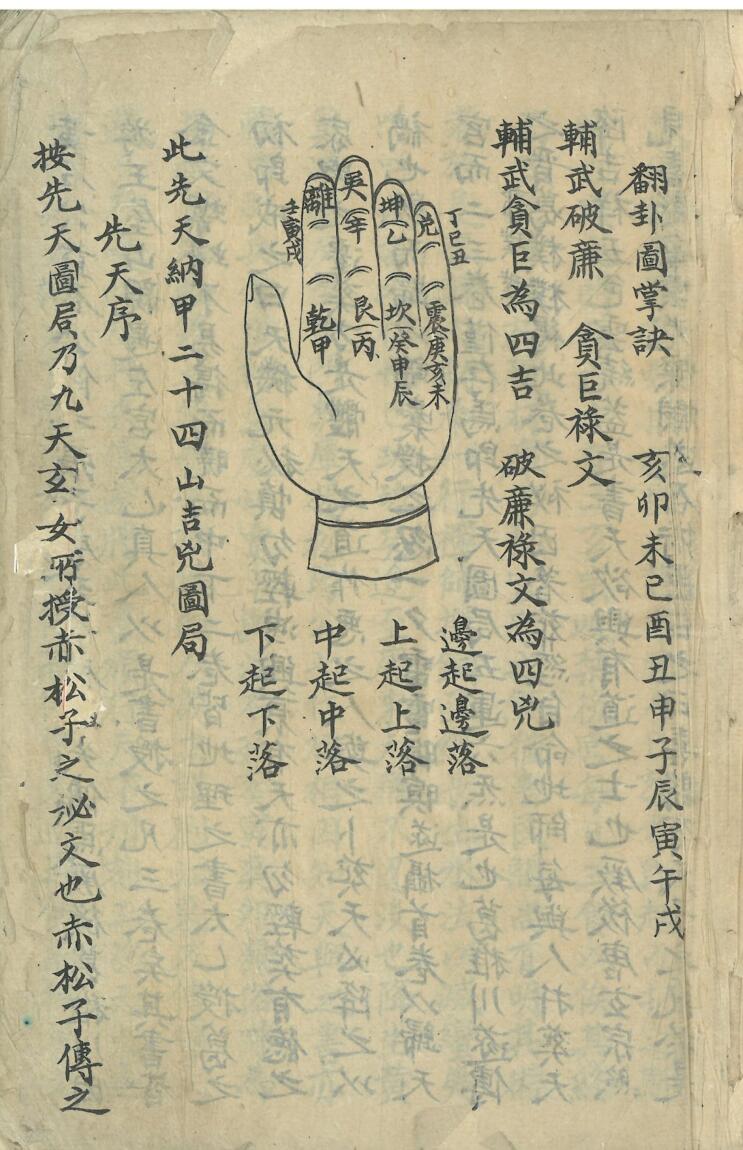 翻卦圖掌訣　亥卯未巳酉丑申子辰寅午戌
輔武破廉　貪巨祿文
輔武貪巨為四吉　破廉祿文為四兇
丁巳丑
兌
震庚亥未
坤乙
坎癸申辰
巽辛
艮丙
離
壬寅戌
乾甲
邊起邊落
上起上落
中起中落
下起下落
此先天納甲二十四山吉兇圖局
先天序
按先天圖局乃九天玄女所授赤松子之祕文也赤松子傳之